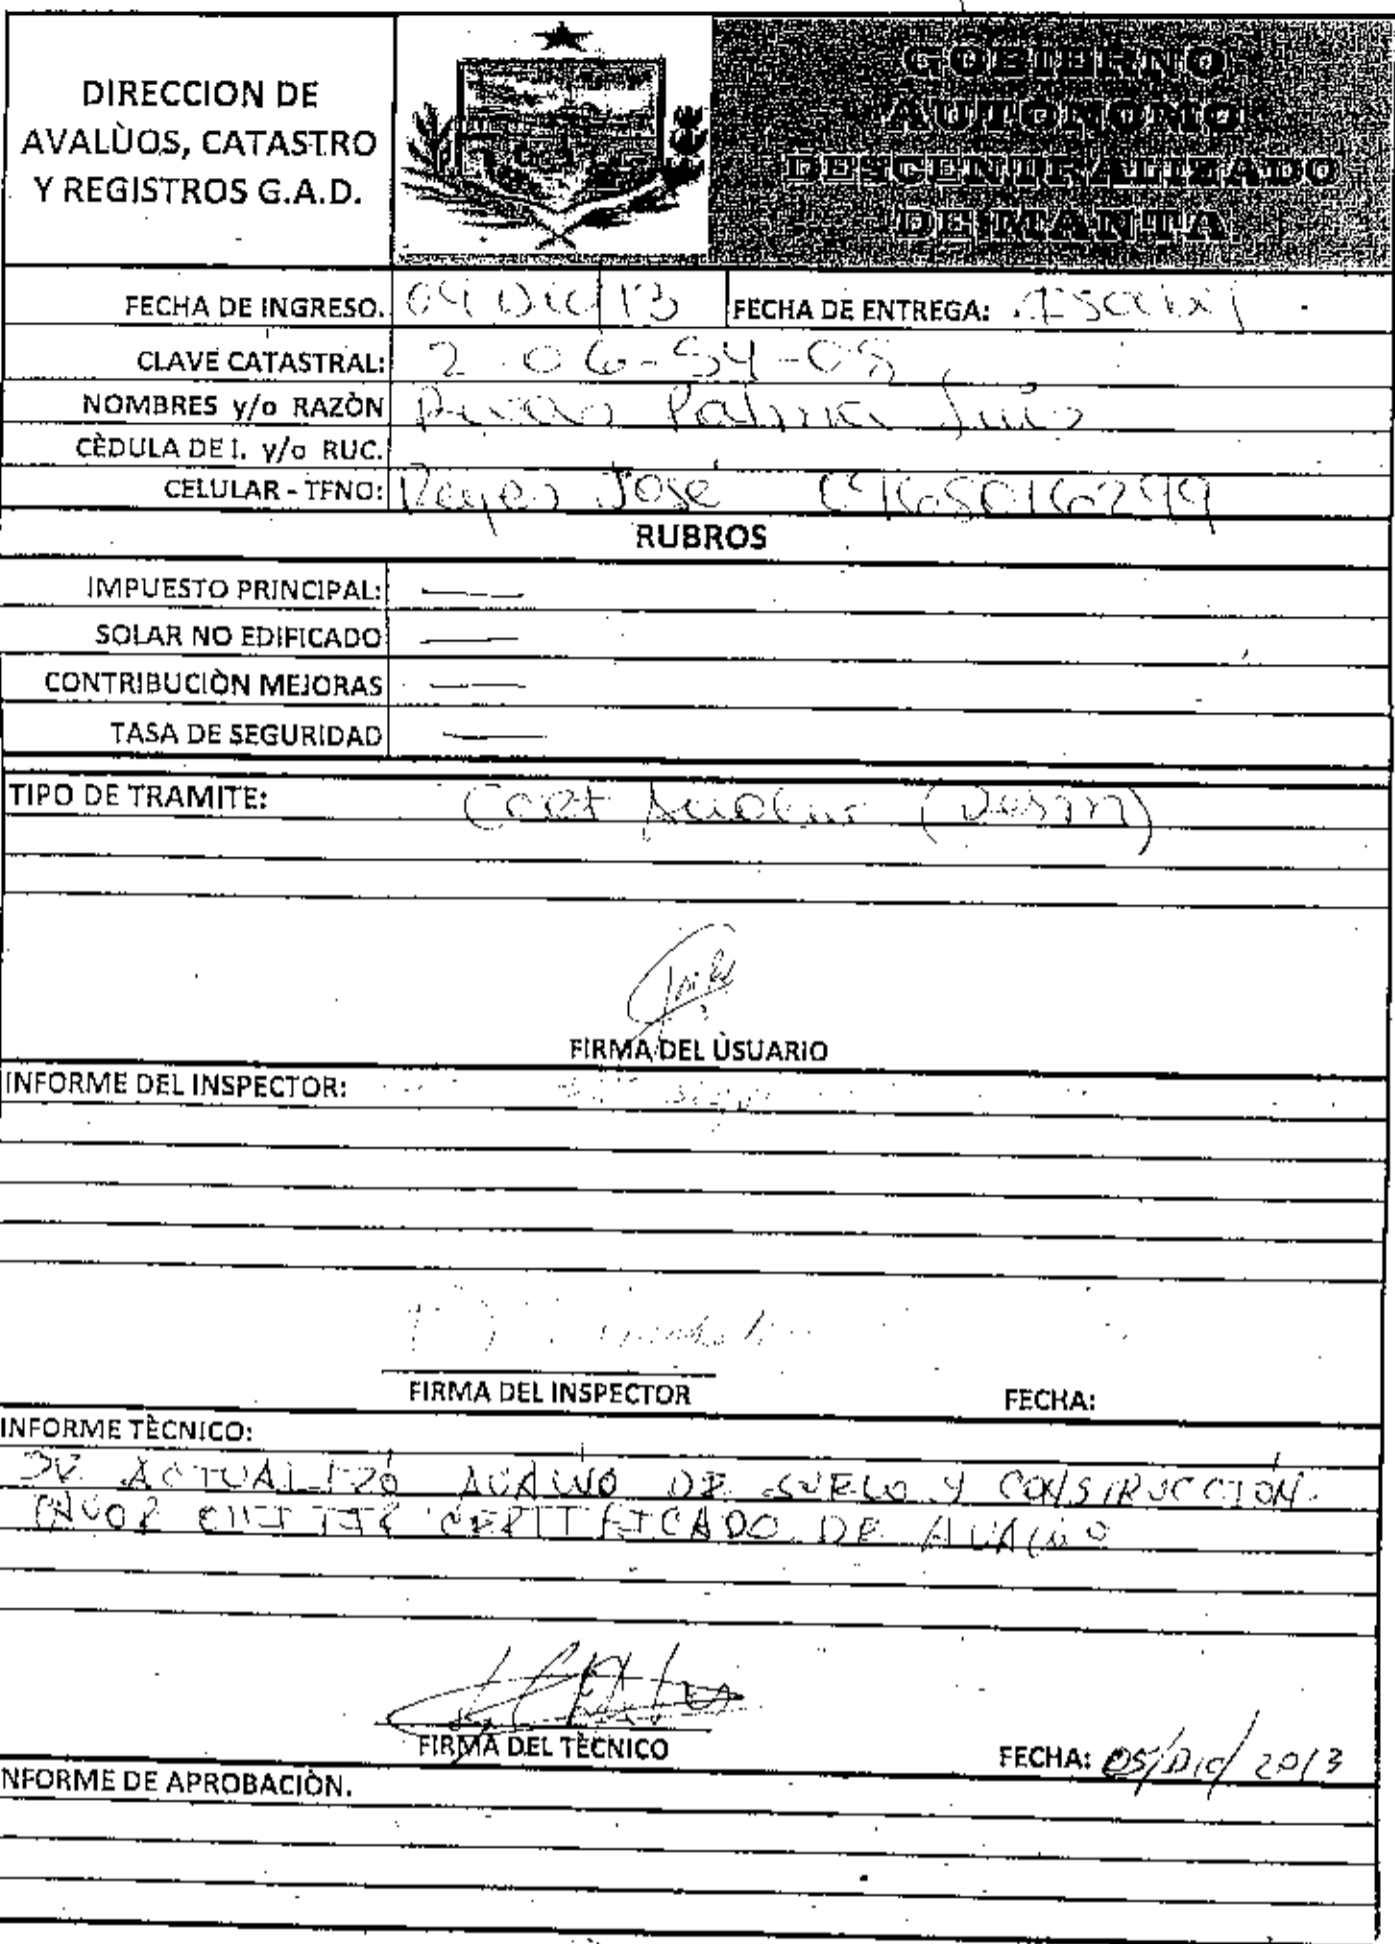 DIRECCION DE
AVALÙOS, CATASTRO
Y REGISTROS G.A.D.
GOBIERNO
AUTÓNOMO
DESCENTRALIZADO
DE MANTA
FECHA DE INGRESO. 04 Dic 13 FECHA DE ENTREGA:
CLAVE CATASTRAL: 2-06-54-08
NOMBRES y/o RAZÒN Palma Luis
CÈDULA DE I. y/o RUC.
CELULAR - TFNO: Reyes José
RUBROS
IMPUESTO PRINCIPAL: ———
SOLAR NO EDIFICADO ———
CONTRIBUCIÒN MEJORAS ———
TASA DE SEGURIDAD ———
TIPO DE TRAMITE: Cert
FIRMA DEL ÙSUARIO
INFORME DEL INSPECTOR:
FIRMA DEL INSPECTOR FECHA:
INFORME TÈCNICO:
SE ACTUALIZÓ AVALUO DE SUELO Y CONSTRUCCIÓN.
FAVOR EMITIR CERTIFICADO DE AVALUO
FIRMA DEL TÈCNICO FECHA: 05/Dic/2013
NFORME DE APROBACIÒN.